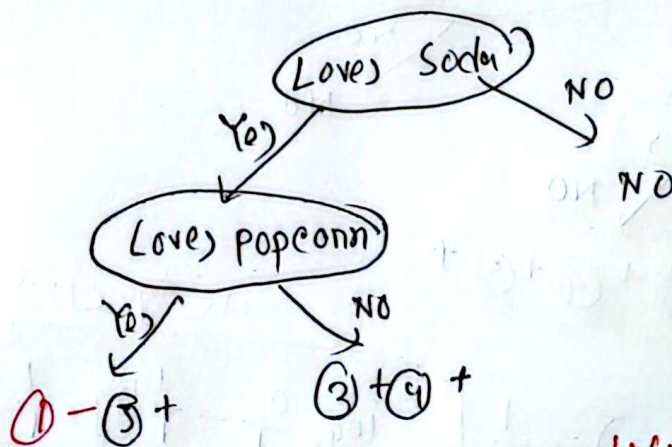 Loves Soda
Yes NO
NO
Loves popcorn
Yes NO
① - ③ + ③ + ④ +